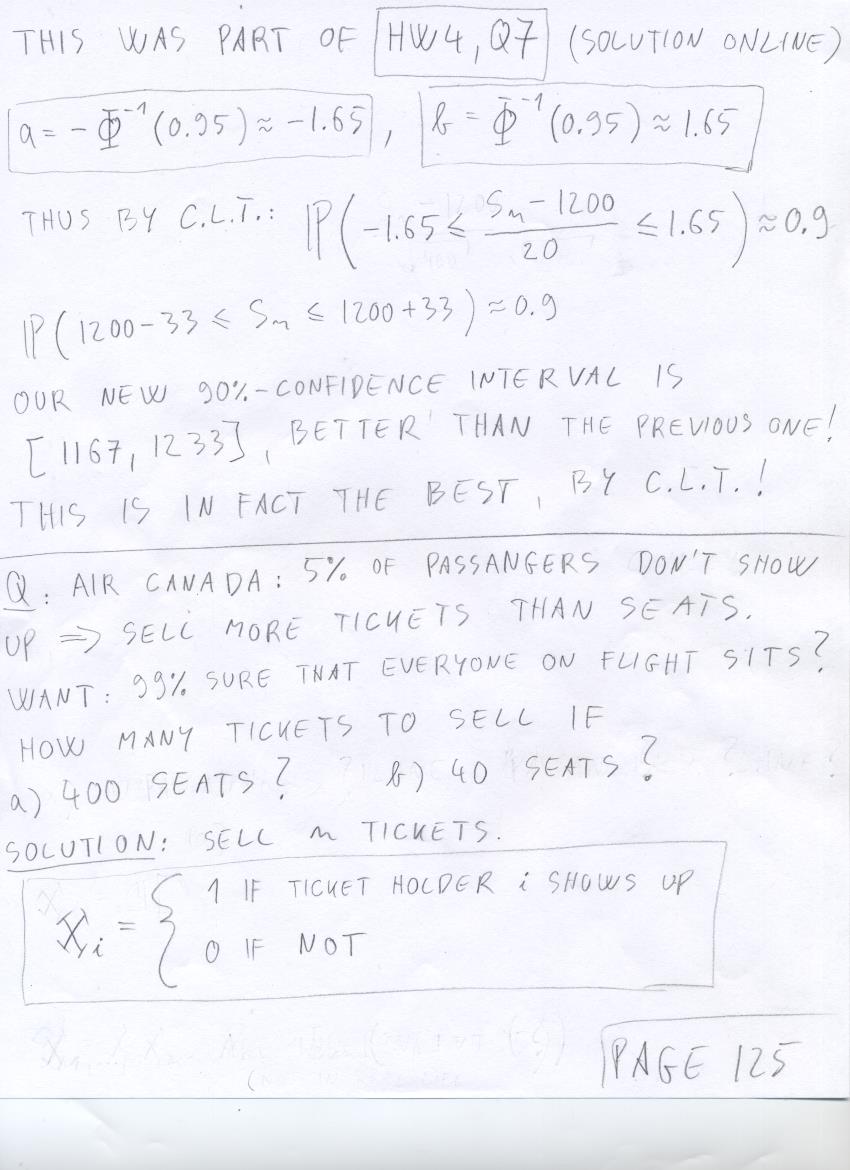 THIS WAS PART OF HW4, Q7 (SOLUTION ONLINE)
a = -Φ⁻¹(0.95) ≈ -1.65, b = Φ⁻¹(0.95) ≈ 1.65
THUS BY C.L.T.: ℙ(-1.65 ≤ (Sₙ - 1200)/20 ≤ 1.65) ≈ 0.9
ℙ(1200-33 ≤ Sₙ ≤ 1200+33) ≈ 0.9
OUR NEW 90%-CONFIDENCE INTERVAL IS
[1167, 1233], BETTER THAN THE PREVIOUS ONE!
THIS IS IN FACT THE BEST, BY C.L.T.!
Q: AIR CANADA: 5% OF PASSANGERS DON'T SHOW
UP ⇒ SELL MORE TICKETS THAN SEATS.
WANT: 99% SURE THAT EVERYONE ON FLIGHT SITS?
HOW MANY TICKETS TO SELL IF
a) 400 SEATS? b) 40 SEATS?
SOLUTION: SELL n TICKETS.
Xᵢ = { 1 IF TICKET HOLDER i SHOWS UP
0 IF NOT
PAGE 125